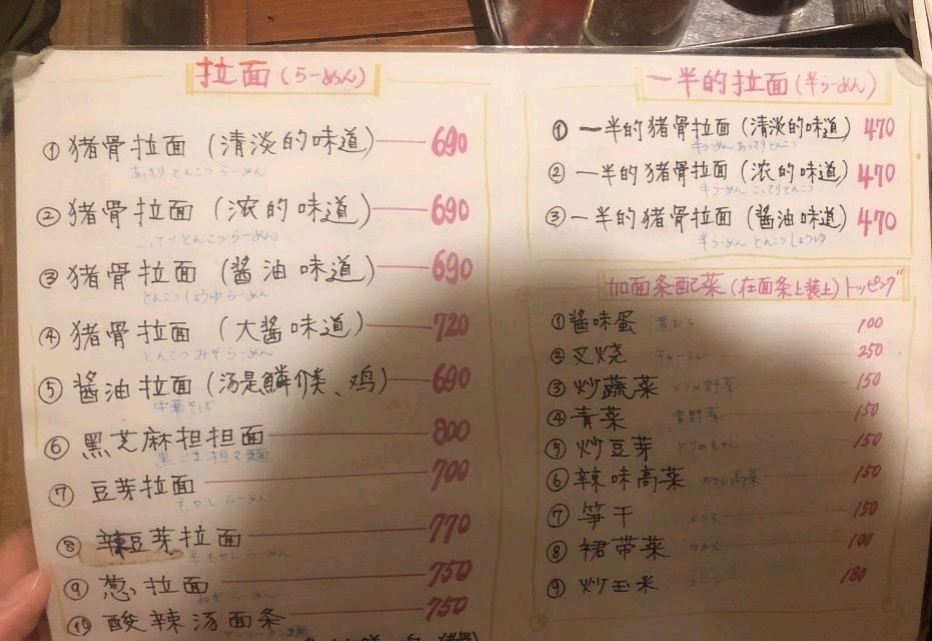 拉面(らーめん)
① 猪骨拉面(清淡的味道) 690
あっさり とんこつ らーめん
② 猪骨拉面(浓的味道) 690
こってりとんこつらーめん
③ 猪骨拉面(酱油味道) 690
とんこつしょうゆらーめん
④ 猪骨拉面(大酱味道) 720
とんこつみそらーめん
⑤ 酱油拉面(汤是鳞介类、鸡) 690
中華そば
⑥ 黑芝麻担担面 800
黒ごま担々麺
⑦ 豆芽拉面 700
もやしらーめん
⑧ 辣豆芽拉面 770
⑨ 葱拉面 750
ねぎらーめん
⑩ 酸辣汤面条 750
一半的拉面(半らーめん)
① 一半的猪骨拉面(清淡的味道) 470
半らーめんあっさりとんこつ
② 一半的猪骨拉面(浓的味道) 470
半らーめん こってりとんこつ
③ 一半的猪骨拉面(酱油味道) 470
半らーめん とんこつしょうゆ
加面条配菜(在面条上装上)トッピング
① 酱味蛋 煮玉子 100
② 叉烧 チャーシュー 250
③ 炒蔬菜 150
④ 青菜 青野菜 150
⑤ 炒豆芽 150
⑥ 辣味高菜 からし高菜 150
⑦ 笋干 メンマ 150
⑧ 裙带菜 ワカメ 100
⑨ 炒玉米 コーン 180